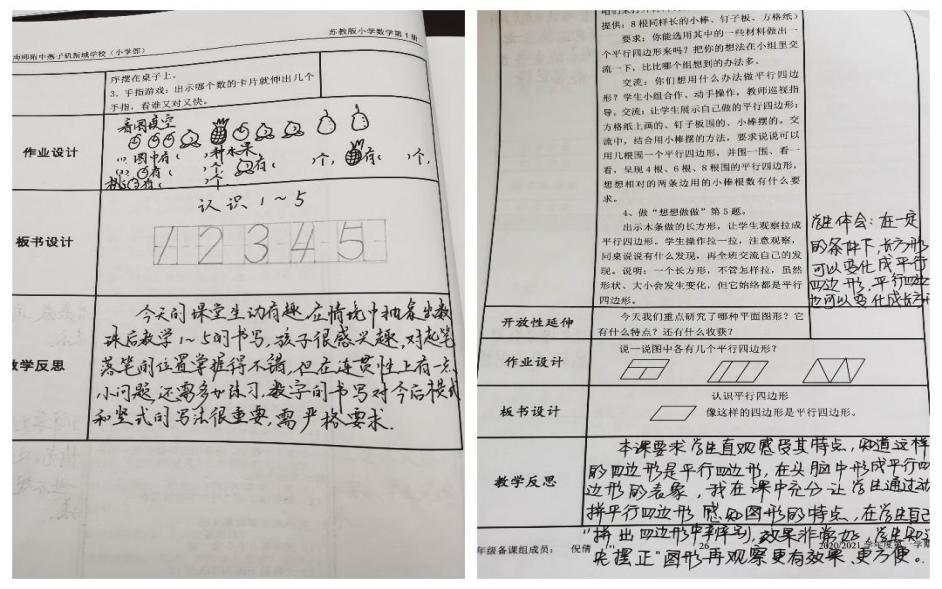 南师附中燕子矶新城学校（小学部）
苏教版小学数学第1册
序摆在桌子上。
3、手指游戏：出示哪个数的卡片就伸出几个
手指，看谁又对又快。
作业设计
看图填空
(1) 图中有（ ）种水果
有（ ）个，有（ ）个，
认识1～5
板书设计
1 2 3 4 5
教学反思
今天的课堂生动有趣，在情境中抽象出数
课后教学1～5的书写，孩子很感兴趣，对起笔
落笔的位置掌握得不错，但在连贯性上有一点
小问题，还需多加练习，数字的书写对今后横式
和竖式的写法很重要，需严格要求.
提供：8根同样长的小棒、钉子板、方格纸）
要求：你能选用其中的一些材料做出一
个平行四边形来吗？把你的想法在小组里交
流一下，比比哪个组想到的办法多。
交流：你们想用什么办法做平行四边
形？学生小组合作、动手操作，教师巡视指
导。交流：让学生展示自己做的平行四边形：
方格纸上画的、钉子板围的、小棒摆的。交
流中，结合用小棒摆的方法，要求说说可以
用几根围一个平行四边形，并围一围、看一
看，呈现4根、6根、8根围的平行四边形，
想想相对的两条边用的小棒根数有什么要
求。
4、做“想想做做”第5题。
出示木条做的长方形，让学生观察拉成
平行四边形。学生操作拉一拉，注意观察，
同桌说说有什么发现，再全班交流自己的发
现。说明：一个长方形，不管怎样拉，虽然
形状、大小会发生变化，但它始终都是平行
四边形。
学生体会：在一定
的条件下，长方形
可以变化成平行
四边形，平行四边
也可以变化成长方
开放性延伸
今天我们重点研究了哪种平面图形？它
有什么特点？还有什么收获？
作业设计
说一说图中各有几个平行四边形？
板书设计
认识平行四边形
像这样的四边形是平行四边形。
教学反思
本课要求学生直观感受其特点，知道这样
的四边形是平行四边形，在头脑中形成平行四
边形的表象，我在课中充分让学生通过动
拼平行四边形感知图形的特点，在学生自己
拼出四边形中辨别，效果非常好，学生知道
先摆正图形再观察更有效果、更方便。
年级备课组成员： 倪倩
26
2020/2021 学年度第 学期